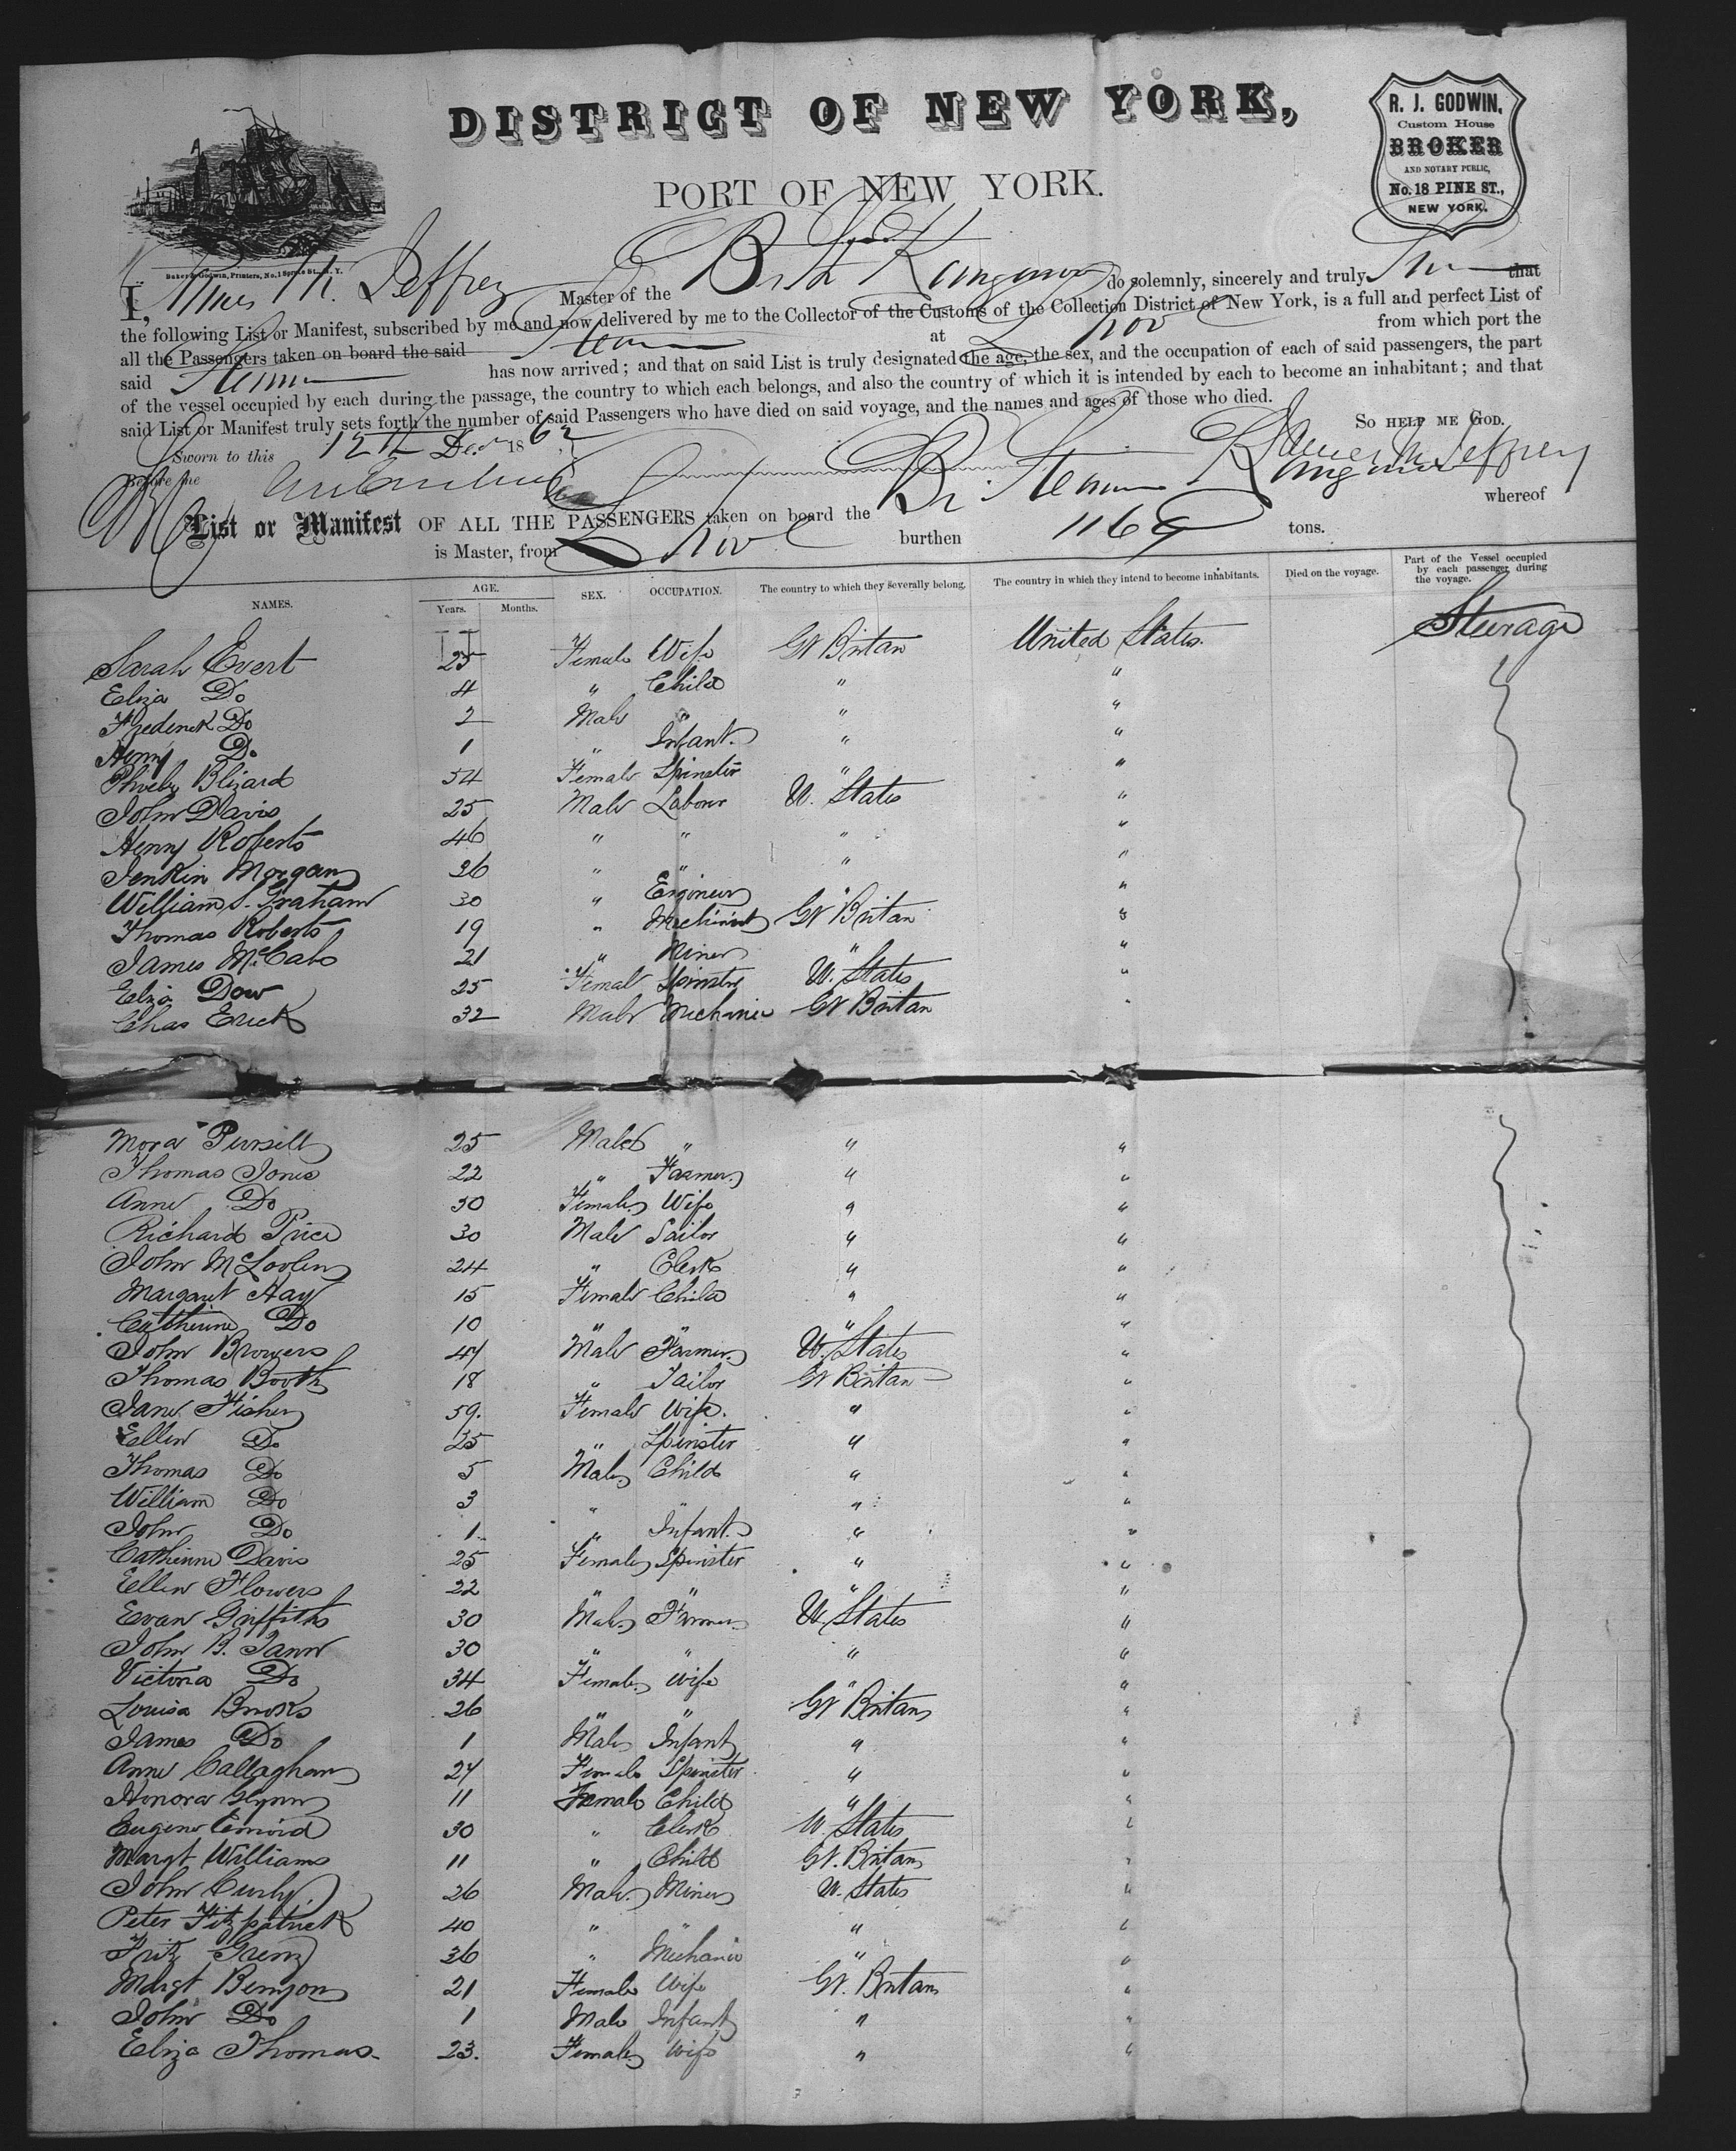 DISTRICT OF NEW YORK,
PORT OF NEW YORK.
R. J. GODWIN,
Custom House
BROKER
AND NOTARY PUBLIC,
No. 18 PINE ST.,
NEW YORK.
Baker & Godwin, Printers, No. 1 Spruce St., N. Y.
I, James M. Jeffrey Master of the Brit Kangaroo do solemnly, sincerely and truly that
the following List or Manifest, subscribed by me and now delivered by me to the Collector of the Customs of the Collection District of New York, is a full and perfect List of
all the Passengers taken on board the said Steamer at L pool from which port the
said Steamer has now arrived; and that on said List is truly designated the age, the sex, and the occupation of each of said passengers, the part
of the vessel occupied by each during the passage, the country to which each belongs, and also the country of which it is intended by each to become an inhabitant; and that
said List or Manifest truly sets forth the number of said Passengers who have died on said voyage, and the names and ages of those who died.
SO HELP ME GOD.
Sworn to this 12th Decr 1862
James M Jeffrey
Before me
List or Manifest OF ALL THE PASSENGERS taken on board the Br. Steamer Kangaroo whereof
is Master, from L pool burthen 1169 tons.
NAMES. AGE. Years. Months. SEX. OCCUPATION. The country to which they severally belong. The country in which they intend to become inhabitants. Died on the voyage. Part of the Vessel occupied by each passenger during the voyage.
Sarah Evert 25 Female Wife Gt Britan United States. Steerage
Eliza Do 4 " Child " "
Frederick Do 2 Male " " "
Henry Do 1 " Infant. " "
Phoeby Blizard 54 Female Spinster " "
John Davis 25 Male Labour U. States "
Henry Roberts 46 " " " "
Jenkin Morgan 26 " " " "
William S. Graham 30 " Engineer " "
Thomas Roberts 19 " Mechinist Gt Britan "
James McCabe 21 " Miner " "
Eliza Dow 25 Female Spinster U. States "
Chas Erick 32 Male Mechanic Gt Britan "
Mora Pursell 25 Male " " "
Thomas Jones 22 " Farmer " "
Anne Do 30 Female Wife " "
Richard Price 30 Male Sailor " "
John 24 " Clerk " "
Margaret Hay 15 Female Child " "
Catherine Do 10 " " " "
John Browers 47 Male Farmer U. States "
Thomas Booth 18 " Tailor Gt Britan "
Jane Fisher 59. Female Wife. " "
Ellen Do 25 " Spinster " "
Thomas Do 5 Male Child " "
William Do 3 " " " "
John Do 1 " Infant " "
Catherine Davis 25 Female Spinster " "
Ellen Flowers 22 " " " "
Evan Griffiths 30 Male Farmer U. States "
John B. Tann 30 " " " "
Victoria Do 34 Female Wife " "
Louisa Brooks 26 " " Gt Britan "
James Do 1 Male Infant " "
Anne Callaghan 27 Female Spinster " "
Honora Glynn 11 Female Child " "
Eugene 30 " Clerk U. States "
Margt Williams 11 " Child Gt. Britan "
John Curly 26 Male Miner U. States "
Peter Fitzpatrick 40 " " " "
Fritz Grem 36 " Mechanic " "
Margt Benyon 21 Female Wife Gt. Britan "
John Do 1 Male Infant " "
Eliza Thomas 23. Female Wife " "